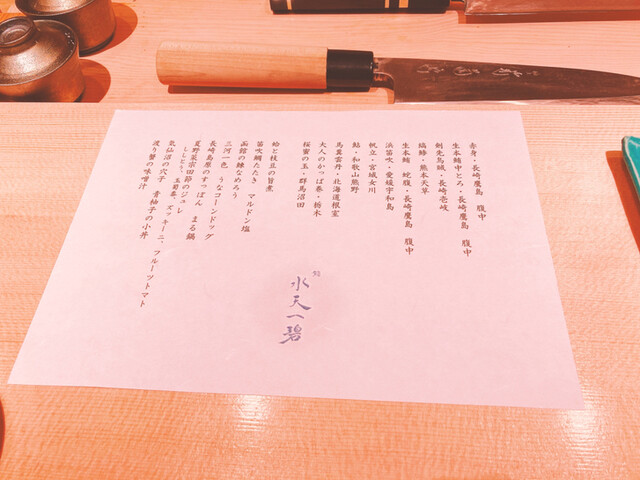 赤身・長崎鷹島 腹中
生本鮪中とろ・長崎鷹島 腹中
剣先烏賊・長崎壱岐
縞鯵・熊本天草
生本鮪 蛇腹・長崎鷹島 腹中
浜笛吹・愛媛宇和島
帆立・宮城女川
鮎・和歌山熊野
馬糞雲丹・北海道根室
大人のかっぱ巻・栃木
桜蜜の玉・群馬沼田
蛤と枝豆の旨煮
笛吹鯛たたき マルドン塩
函館の鰊なめろう
三河一色 うなコーンドッグ
長崎島原のすっぽん まる鍋
夏野菜宗田節のジュレ
ししとう、玉蜀黍、ズッキーニ、フルーツトマト
気仙沼の穴子 青柚子の小丼
渡り蟹の味噌汁
鮨
水天一碧